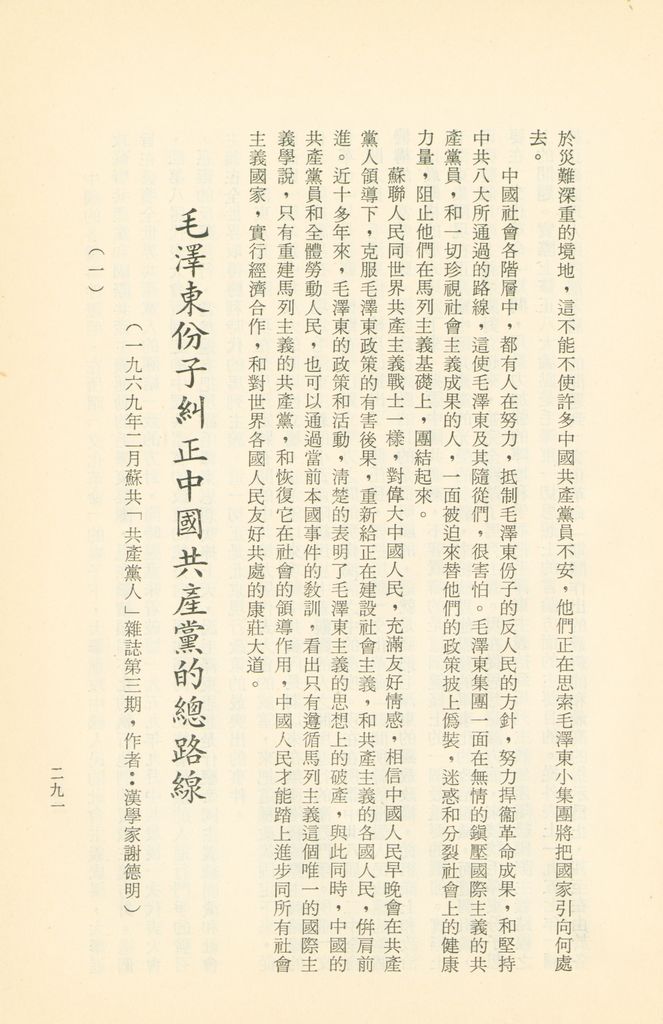 於災難深重的境地，這不能不使許多中國共產黨員不安，他們正在思索毛澤東小集團將把國家引向何處
去。
中國社會各階層中，都有人在努力，抵制毛澤東份子的反人民的方針，努力捍衞革命成果，和堅持
中共八大所通過的路線，這使毛澤東及其隨從們，很害怕。毛澤東集團一面在無情的鎭壓國際主義的共
產黨員，和一切珍視社會主義成果的人，一面被迫來替他們的政策披上僞裝，迷惑和分裂社會上的健康
力量，阻止他們在馬列主義基礎上，團結起來。
蘇聯人民同世界共產主義戰士一樣，對偉大中國人民，充滿友好情感，相信中國人民早晚會在共產
黨人領導下，克服毛澤東政策的有害後果，重新給正在建設社會主義，和共產主義的各國人民，倂肩前
進。近十多年來，毛澤東的政策和活動，淸楚的表明了毛澤東主義的思想上的破產，與此同時，中國的
共產黨員和全體勞動人民，也可以通過當前本國事件的敎訓，看出只有遵循馬列主義這個唯一的國際主
義學說，只有重建馬列主義的共產黨，和恢復它在社會的領導作用，中國人民才能踏上進步同所有社會
主義國家，實行經濟合作，和對世界各國人民友好共處的康莊大道。
毛澤東份子糾正中國共產黨的總路線
（一九六九年二月蘇共「共產黨人」雜誌第三期，作者：漢學家謝德明）
（一）
二九一